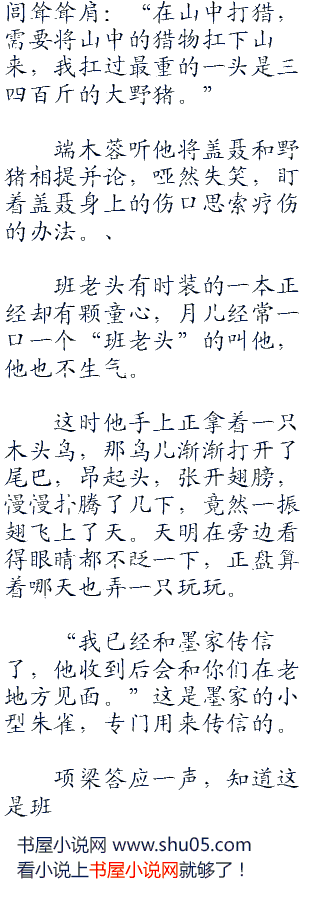 闾耸耸肩：“在山中打猎，
需要将山中的猎物扛下山
来，我扛过最重的一头是三
四百斤的大野猪。”
端木蓉听他将盖聂和野
猪相提并论，哑然失笑，盯
着盖聂身上的伤口思索疗伤
的办法。、
班老头有时装的一本正
经却有颗童心，月儿经常一
口一个“班老头”的叫他，
他也不生气。
这时他手上正拿着一只
木头鸟，那鸟儿渐渐打开了
尾巴，昂起头，张开翅膀，
慢慢扑腾了几下，竟然一振
翅飞上了天。天明在旁边看
得眼睛都不眨一下，正盘算
着哪天也弄一只玩玩。
“我已经和墨家传信
了，他收到后会和你们在老
地方见面。”这是墨家的小
型朱雀，专门用来传信的。
项梁答应一声，知道这
是班
书屋小说网 www.shu05.com
看小说上书屋小说网就够了！